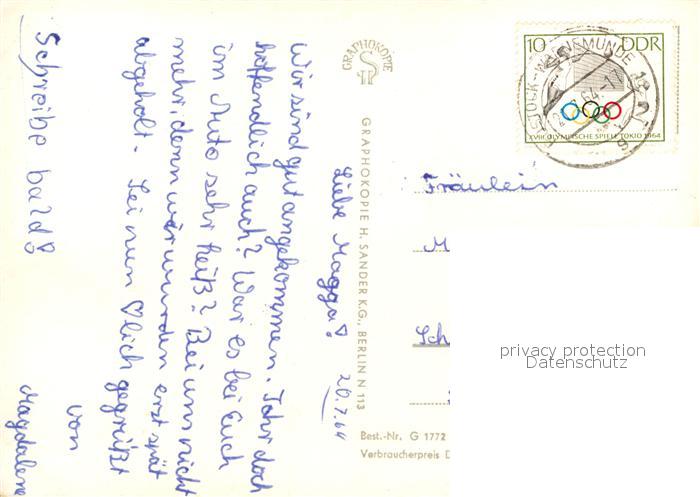 20.7.64
Liebe Magga!
Wir sind gut angekommen. Ihr doch
hoffendlich auch? War es bei Euch
im Auto sehr heiß? Bei uns nicht
mehr, denn wir wurden erst spät
abgeholt. Sei nun ♡lich gegrüßt
von
Magdalene
Schreibe bald!
GRAPHOKOPIE
GRAPHOKOPIE H. SANDER K.G., BERLIN N 113
Best.-Nr. G 1772
Verbraucherpreis D
10 DDR
XVIII. OLYMPISCHE SPIELE TOKIO 1964
WARNEMÜNDE
Fräulein
M
Sch
privacy protection
Datenschutz